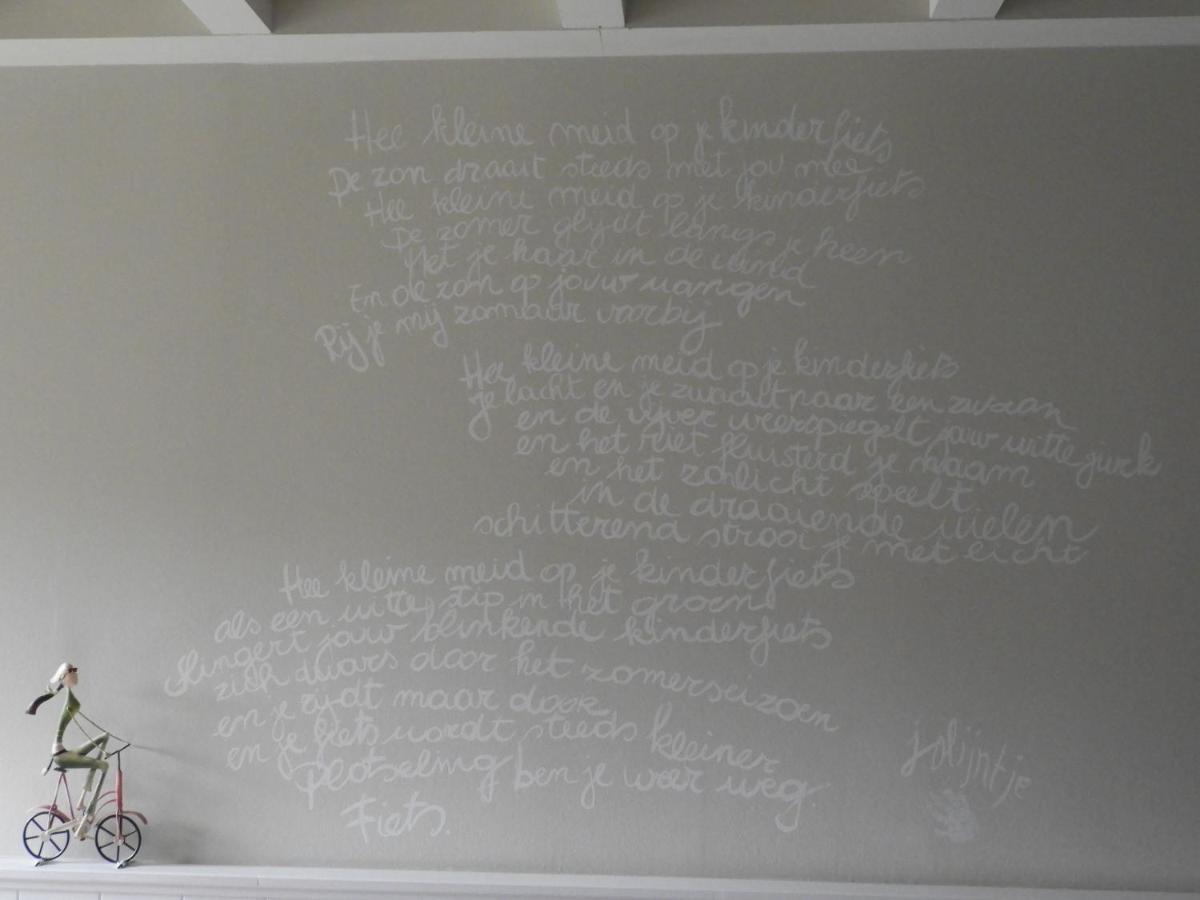 Hee kleine meid op je kinderfiets
De zon draait steeds met jou mee
Hee kleine meid op je kinderfiets
De zomer glijdt langs je heen
Met je haar in de wind
En de zon op jouw wangen
Rij je mij zomaar voorbij
Hee kleine meid op je kinderfiets
je lacht en je zwaait naar een zwaan
en de vijver weerspiegelt jouw witte jurk
en het riet fluisterd je naam
en het zonlicht speelt
in de draaiende wielen
schitterend strooi je met licht
Hee kleine meid op je kinderfiets
als een witte stip in het groen
slingert jouw blinkende kinderfiets
zich dwars door het zomerseizoen
en je rijdt maar door
en je fiets wordt steeds kleiner
plotseling ben je weer weg
Fiets.
jolijntje